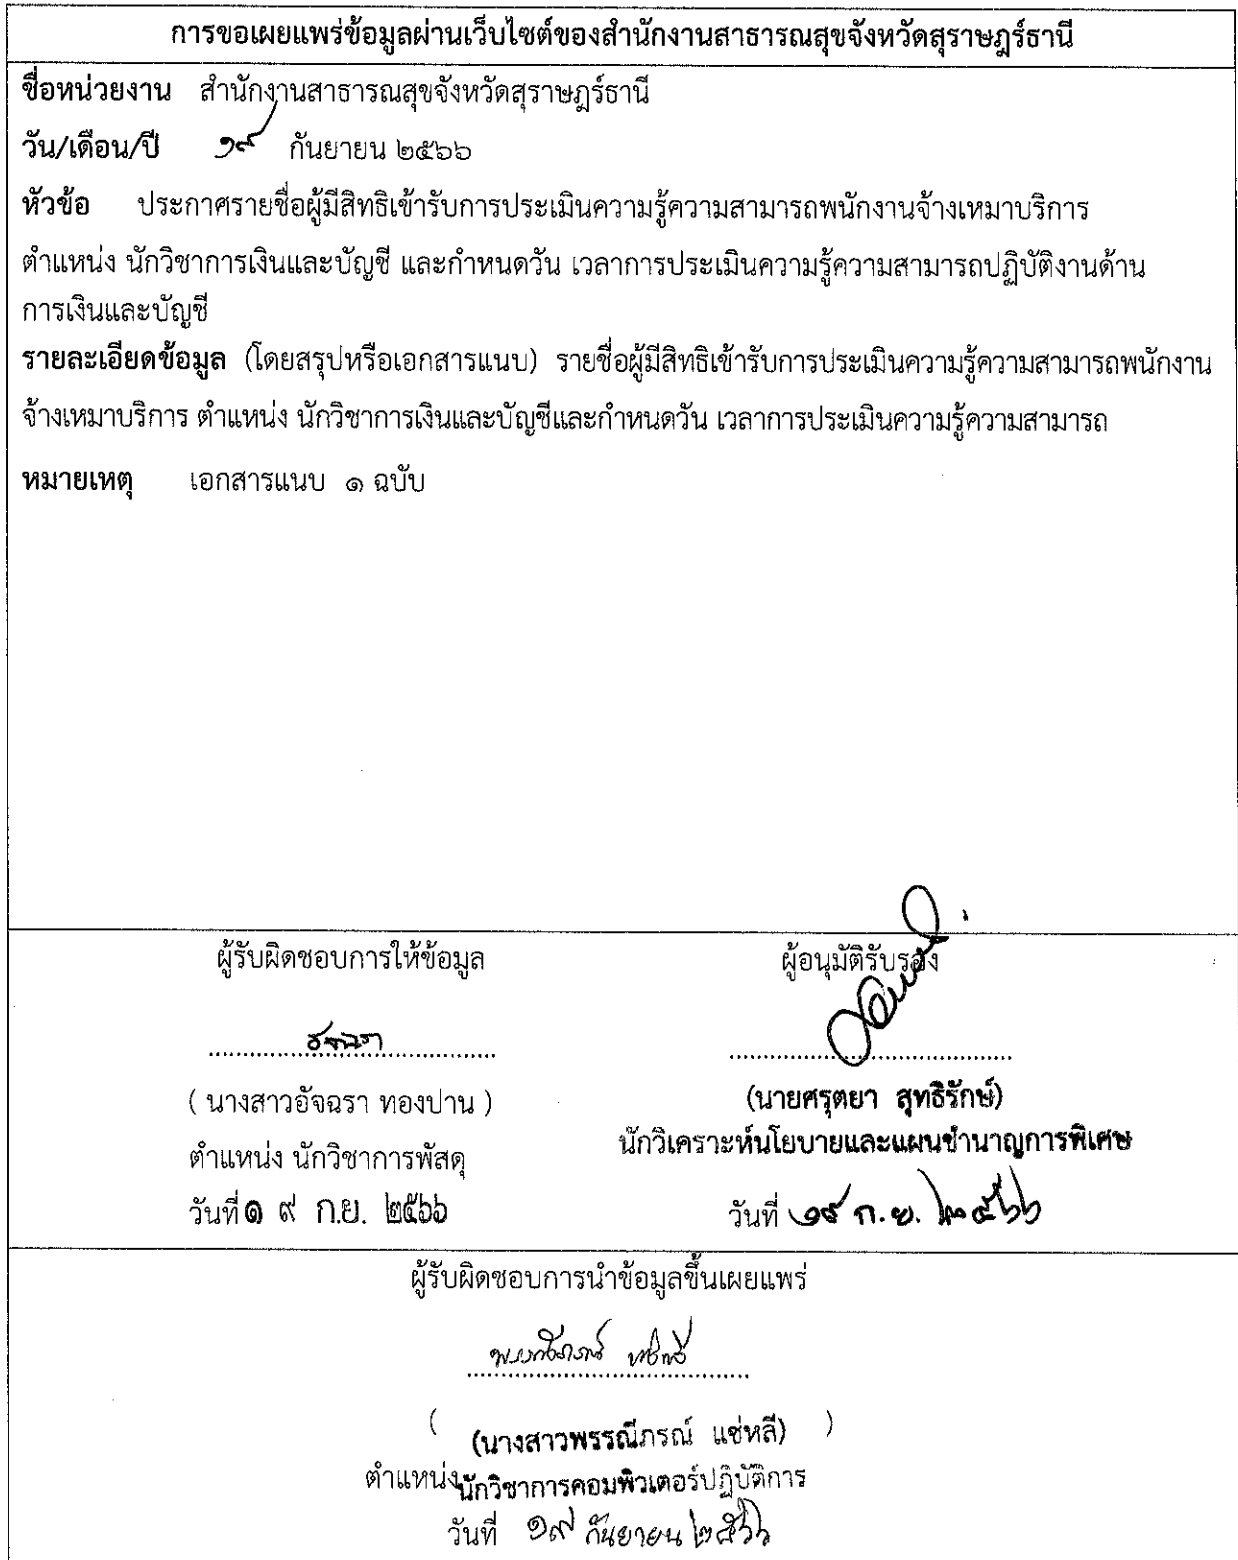 การขอเผยแพร่ข้อมูลผ่านเว็บไซต์ของสำนักงานสาธารณสุขจังหวัดสุราษฎร์ธานี
ชื่อหน่วยงาน สำนักงานสาธารณสุขจังหวัดสุราษฎร์ธานี
วัน/เดือน/ปี ๑๙ กันยายน ๒๕๖๖
หัวข้อ ประกาศรายชื่อผู้มีสิทธิเข้ารับการประเมินความรู้ความสามารถพนักงานจ้างเหมาบริการ
ตำแหน่ง นักวิชาการเงินและบัญชี และกำหนดวัน เวลาการประเมินความรู้ความสามารถปฏิบัติงานด้าน
การเงินและบัญชี
รายละเอียดข้อมูล (โดยสรุปหรือเอกสารแนบ) รายชื่อผู้มีสิทธิเข้ารับการประเมินความรู้ความสามารถพนักงาน
จ้างเหมาบริการ ตำแหน่ง นักวิชาการเงินและบัญชีและกำหนดวัน เวลาการประเมินความรู้ความสามารถ
หมายเหตุ เอกสารแนบ ๑ ฉบับ
ผู้รับผิดชอบการให้ข้อมูล ผู้อนุมัติรับรอง
อัจฉรา
( นางสาวอัจฉรา ทองปาน ) (นายศรุตยา สุทธิรักษ์)
ตำแหน่ง นักวิชาการพัสดุ นักวิเคราะห์นโยบายและแผนชำนาญการพิเศษ
วันที่ ๑ ๙ ก.ย. ๒๕๖๖ วันที่ ๑๙ ก.ย. ๒๕๖๖
ผู้รับผิดชอบการนำข้อมูลขึ้นเผยแพร่
( (นางสาวพรรณีภรณ์ แซ่หลี) )
ตำแหน่ง นักวิชาการคอมพิวเตอร์ปฏิบัติการ
วันที่ ๑๙ กันยายน ๒๕๖๖